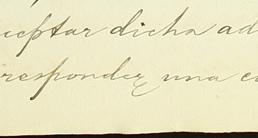 aceptar dicha ad
responder una c